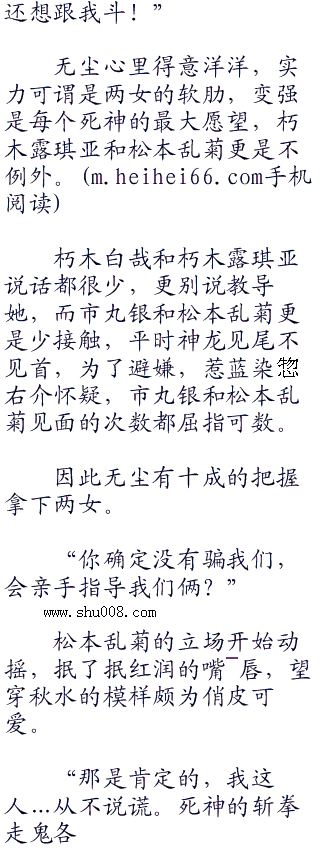 还想跟我斗！”
无尘心里得意洋洋，实
力可谓是两女的软肋，变强
是每个死神的最大愿望，朽
木露琪亚和松本乱菊更是不
例外。(m.heihei66.com手机
阅读)
朽木白哉和朽木露琪亚
说话都很少，更别说教导
她，而市丸银和松本乱菊更
是少接触，平时神龙见尾不
见首，为了避嫌，惹蓝染惣
右介怀疑，市丸银和松本乱
菊见面的次数都屈指可数。
因此无尘有十成的把握
拿下两女。
“你确定没有骗我们，
会亲手指导我们俩？”
www.shu008.com
松本乱菊的立场开始动
摇，抿了抿红润的嘴¯唇，望
穿秋水的模样颇为俏皮可
爱。
“那是肯定的，我这
人…从不说谎。死神的斩拳
走鬼各